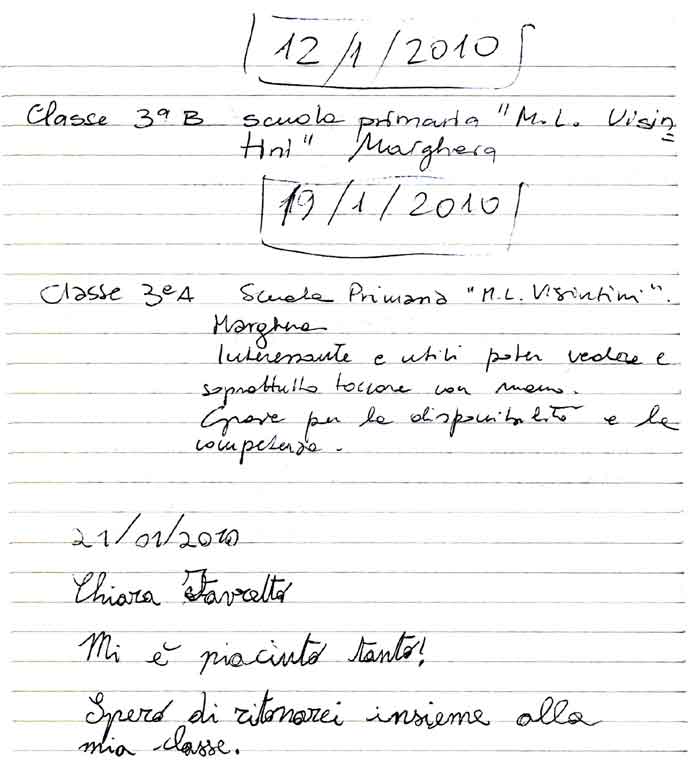 12/1/2010
Classe 3ª B scuola primaria "M.L. Visin
tini" Marghera
19/1/2010
Classe 3ª A Scuola Primaria "M.L. Visintini".
Marghera
Interessante e utili poter vedere e
soprattutto toccare con mano.
Grazie per la disponibilità e la
competenza.
21/01/2010
Chiara Favretto
Mi è piaciuto tanto!
Spero di ritonarci insieme alla
mia classe.